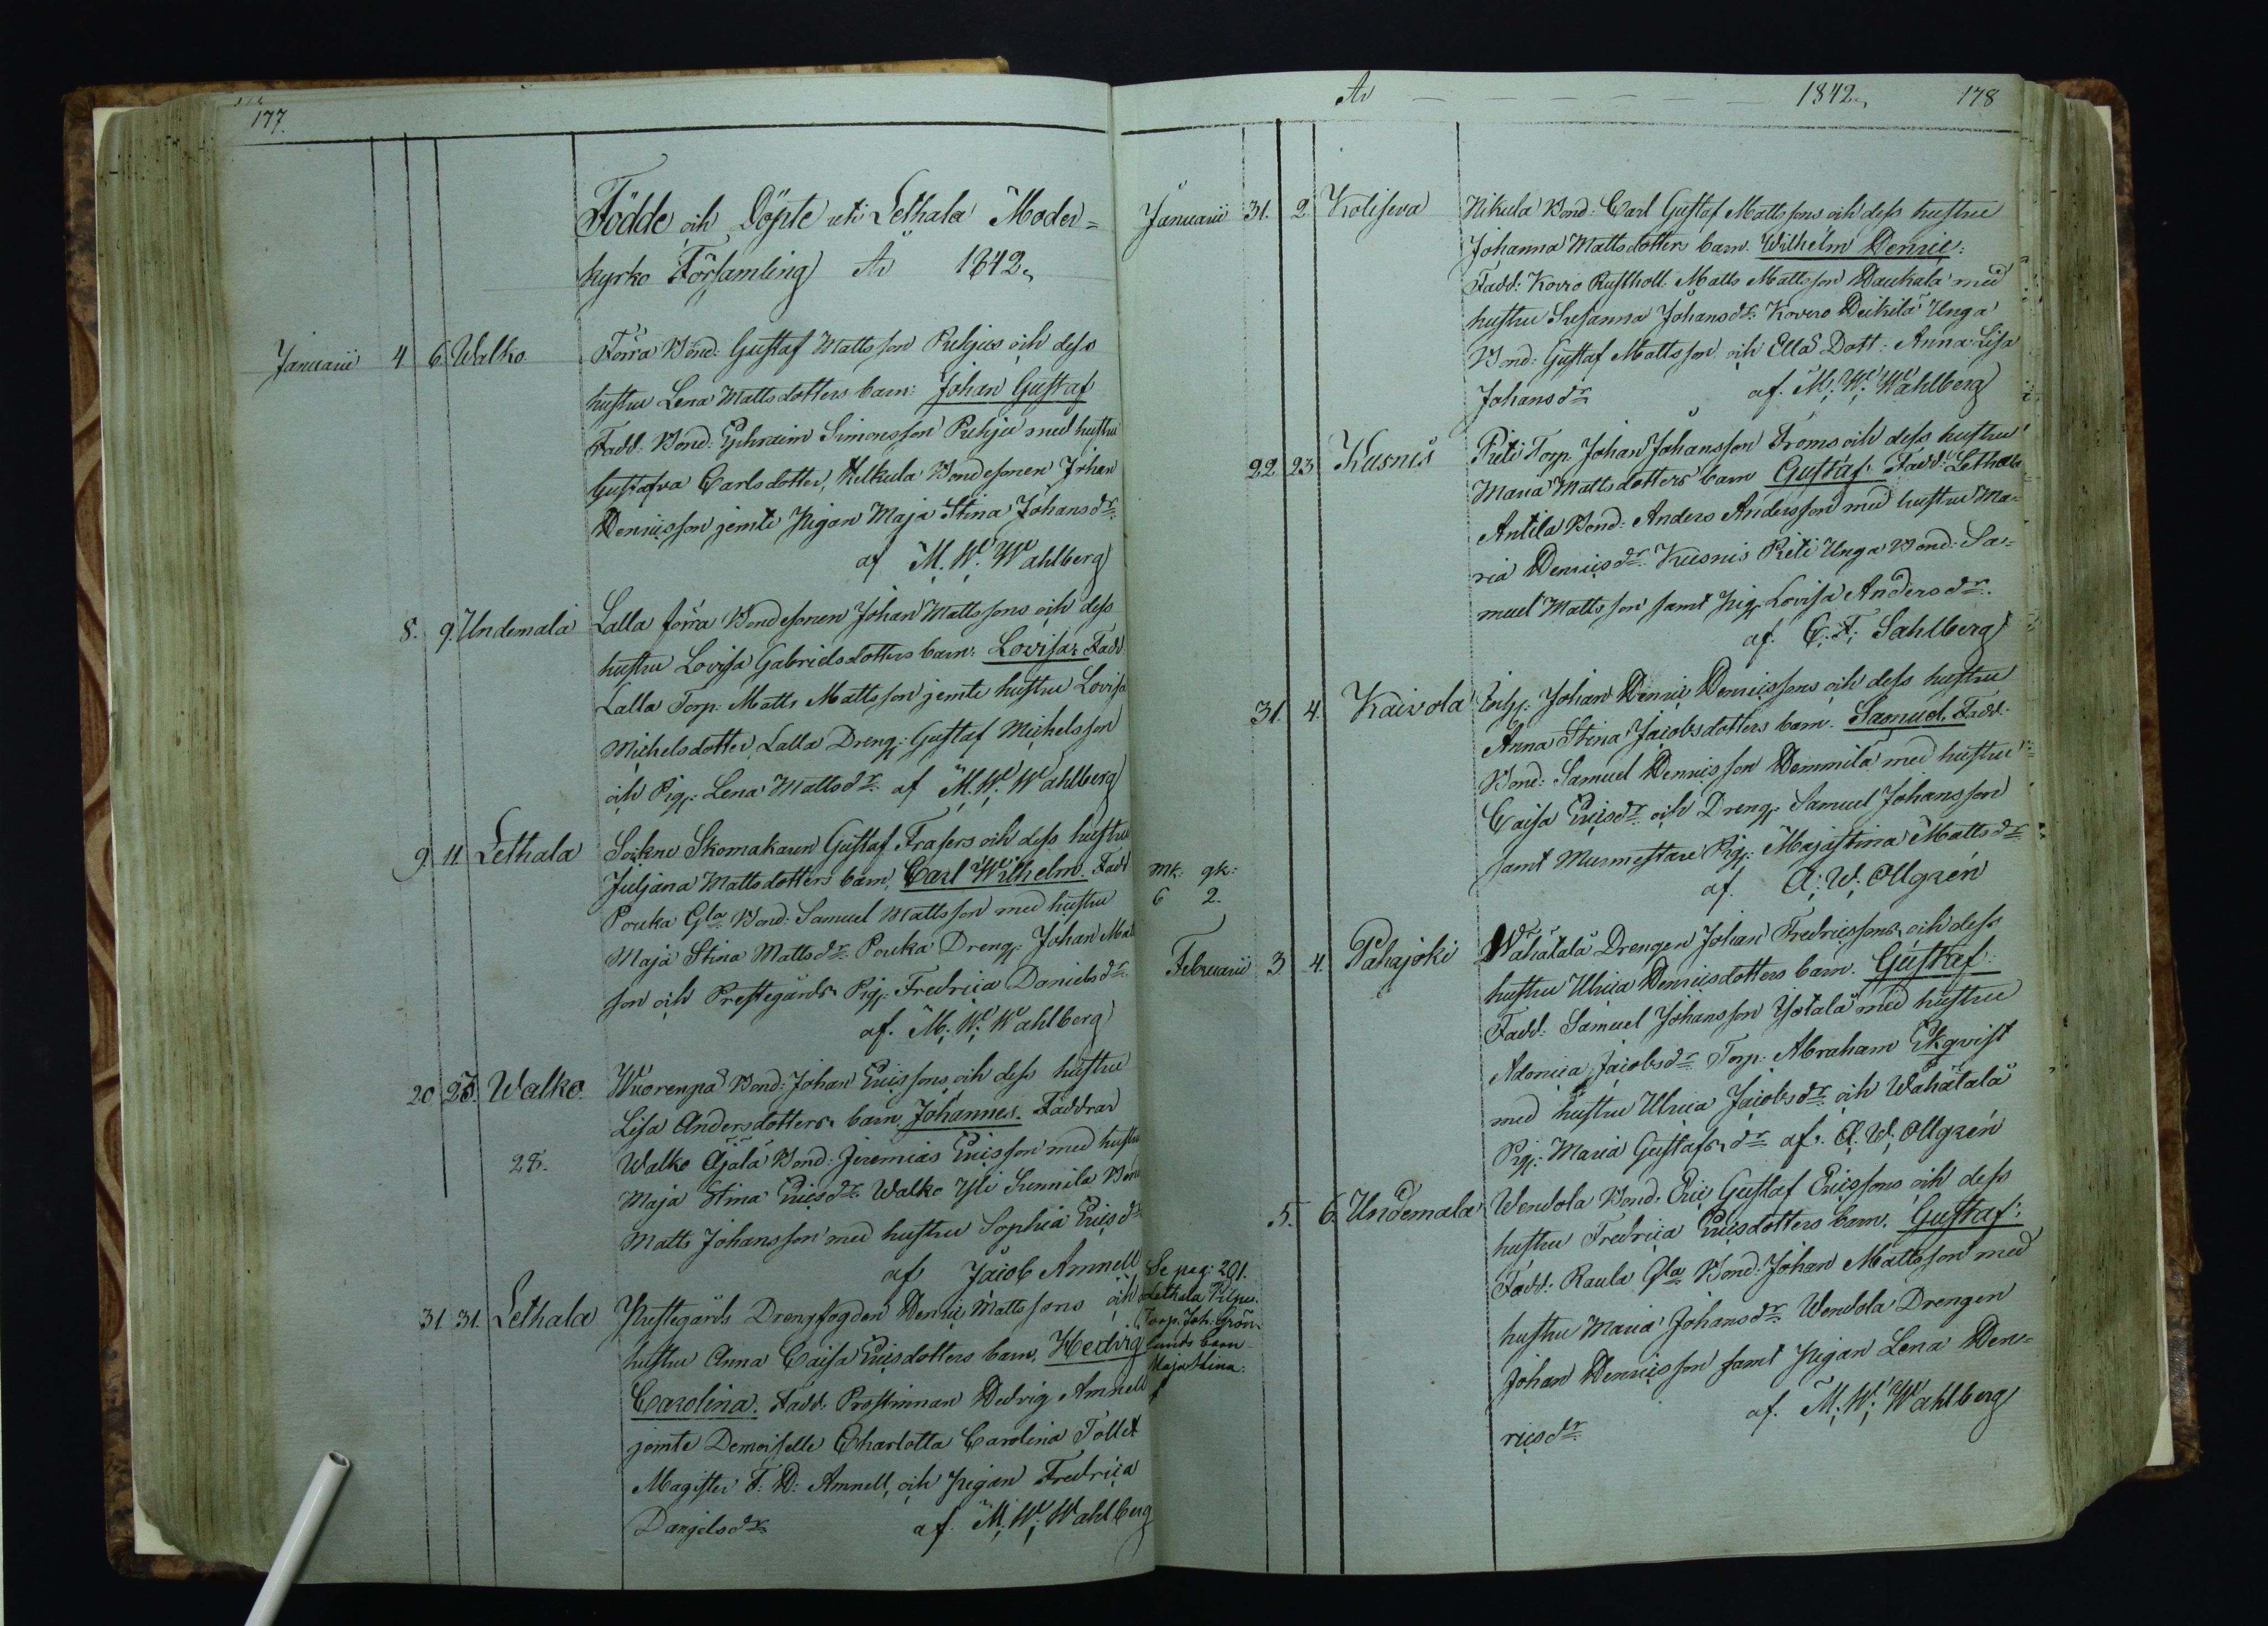 177.
Födde och Döpte uti Lethala Moder=
kyrko Församling År 1842.
Januarii 4 6. Walko Förra Bond: Gustaf Mattsson Puhjus och dess
hustru Lena Mattsdotters barn: Johan Gustaf
Fadd. Bond. Ephraim Simonsson Puhju med hustru
Gustafva Carlsdotter, Kelkula Bondesonen Johan
Henricsson jemte Pigan Maja Stina Johansdr.
af M. W. Wahlberg
8. 9. Undemala Lalla förra Bondesonen Johan Mattssons och dess
hustru Lovisa Gabrielsdotters barn: Lovisa: Fadd.
Lalla Torp. Matts Mattsson jemte hustru Lovisa
Michelsdotter, Lalla Dreng: Gustaf Michelsson
och Pig: Lena Mattsdr. af M. W. Wahlberg
9. 11. Lethala Sockne Skomakaren Gustaf Frasers och dess hustru
Juljana Mattsdotters barn, Carl Wilhelm. Fadd
Pouka Gla Bond: Samuel Mattsson med hustru
Maja Stina Mattsdr. Pouka Dreng: Johan Mat
son och Prestegårds Pig: Fredrica Danielsdr.
af. M. W. Wahlberg
20 23. Walko. Wuorenpä Bond: Johan Ericssons och dess hustru
Lisa Andersdotters barn, Johannes. Faddrar
28. Walko Äjälä Bond: Jeremias Ericsson med hustru
Maja Stina Ericsdr. Walko Yli Sunnila Bond
Matts Johansson med hustru Sophia Ericsdr.
af Jacob Amnell
31. 31. Lethala Prestegårds Drengfogden Henric Mattssons och
hustru Anna Caisa Ericsdotters barn, Hedvig
Carolina. Fadd. Prostinnan Hedvig Amnell
jemte Demoiselle Charlotta Carolina Tollet
Magister F. H. Amnell, och Pigan Fredrica
Danjelsdr. af. M. W. Wahlberg
År 1842. 178
Januarii 31. 2 Koliseva Nikula Bond: Carl Gustaf Mattssons och dess hustru
Johanna Mattsdotters barn. Wilhelm Henric.
Fadd: Kovro Rusthåll. Matts Mattsson Haukala med
hustru Susanna Johansdr. Kovero Heikilä Unga
Bond: Gustaf Mattsson och Ella Dott: Anna Lisa
Johansdr. af. M. W. Wahlberg
22 23 Kusnis Rieti Torp. Johan Johansson Froms och dess hustru
Maria Mattsdotters barn Gustaf. Fadd: Lethala
Antila Bond: Anders Andersson med hustru Ma=
ria Henricsdr. Kusnis Rieti Unga Bond: Sa=
muel Mattsson samt Pig. Lovisa Andersdr.
af. C. F. Sahlberg
31. 4. Kaivola Inh. Johan Henric Henricssons och dess hustru
Anna Stina Jacobsdotters barn. Samuel. Fadd.
Bond: Samuel Henricsson Hemmilä med hustru
Caisa Ericsdr. och Dreng. Samuel Johansson
samt Murmestare Pig: Majastina Mattsdr.
af. A. W. Ollgrén
mk: qk:
6 2.
Februarii 3 4. Pahajoki Wähätalä Drengen Johan Fredricssons och dess
hustru Ulrica Henricsdotters barn. Gustaf.
Fadd. Samuel Johansson Isotala med hustru
Adorica Jacobsdr. Torp: Abraham Ekqvist
med hustru Ulrica Jacobsdr. och Wähätalä
Pig: Maria Gustafsdr. af. A. W. Ollgrén
5. 6. Undemala Wendola Bond: Eric Gustaf Ericssons och dess
hustru Fredrica Ericsdotters barn. Gustaf:
Fadd: Raula Gla Bond: Johan Mattsson med
hustru Maria Johansdr. Wendola Drengen
Johan Henricsson samt Pigan Lena Hen=
ricsdr. af. M. W. Wahlberg
Se pag: 201.
Lethala
Torp. Joh: Grön=
lunds barn
Maja Stina.